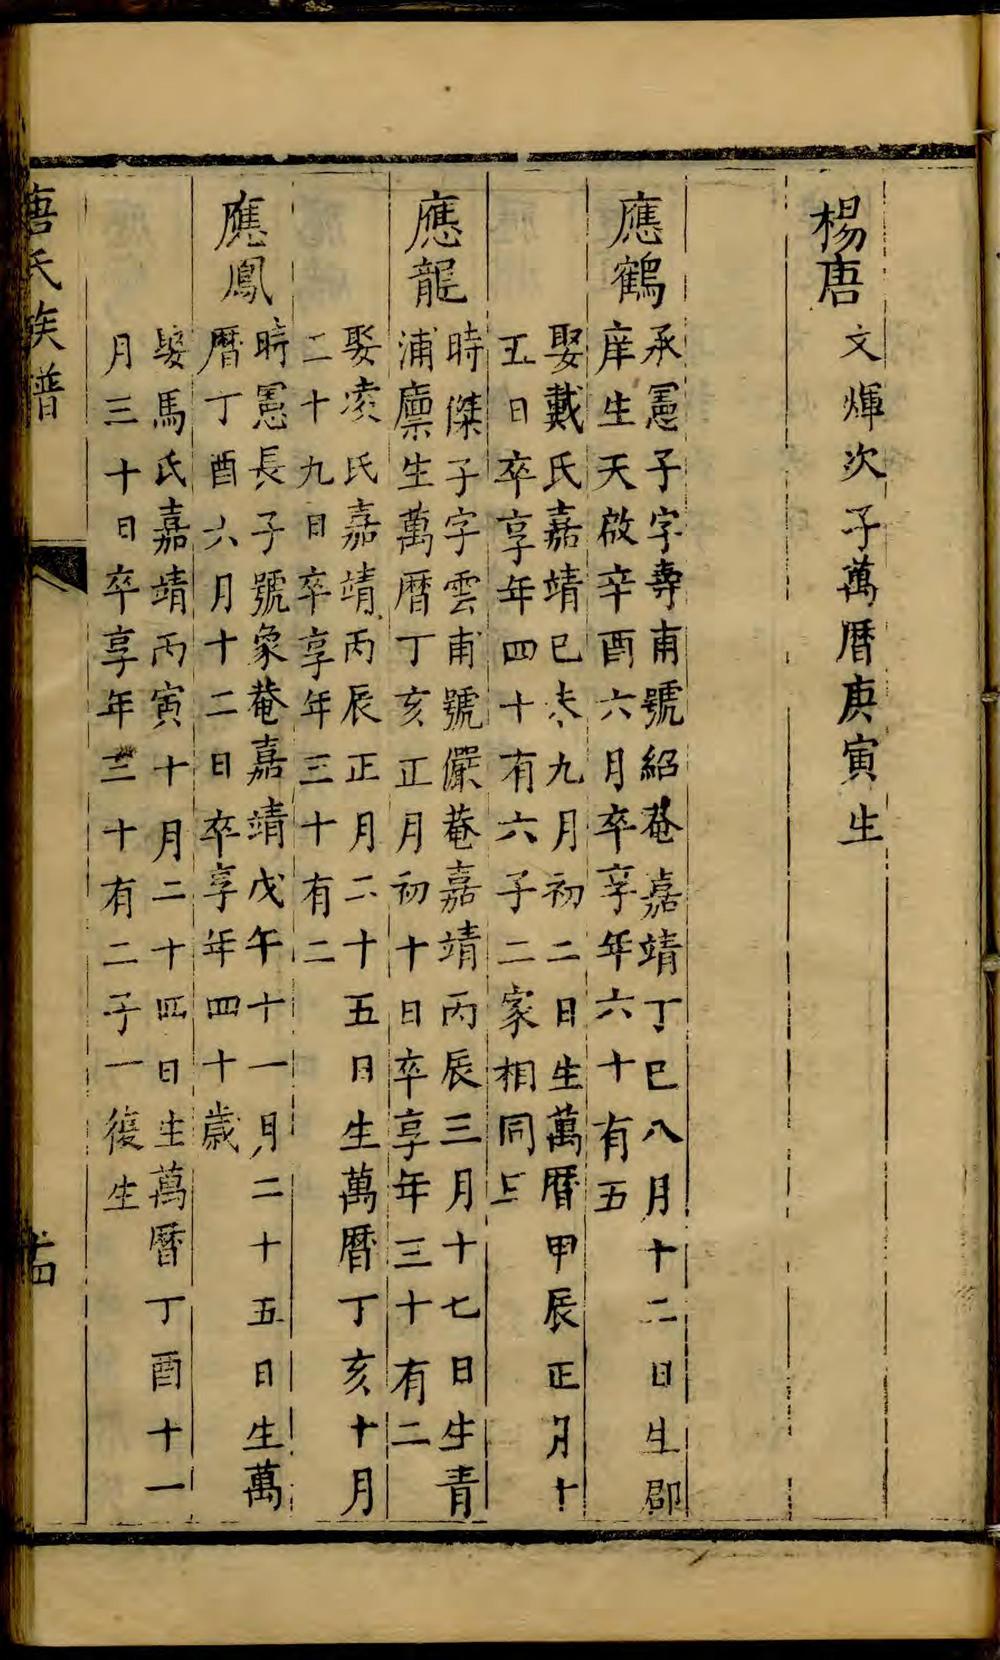 楊唐文煇次子萬曆庚寅生
應鶴
承憲子字壽甫號紹菴嘉靖丁巳八月十二日生郡
庠生天啟辛酉六月卒享年六十有五
娶戴氏嘉靖己未九月初二日生萬曆甲辰正月十
五日卒享年四十有六子二家相同上
應龍
時傑子字雲甫號儼菴嘉靖丙辰三月十七日生青
浦廩生萬曆丁亥正月初十日卒享年三十有二
娶凌氏嘉靖丙辰正月二十五日生萬曆丁亥十月
二十九日卒享年三十有二
應鳳
時憲長子號象菴嘉靖戊午十一月二十五日生萬
曆丁酉六月十二日卒享年四十歲
娶馬氏嘉靖丙寅十月二十四日生萬曆丁酉十一
月三十日卒享年三十有二子一復生
唐氏族譜
十四